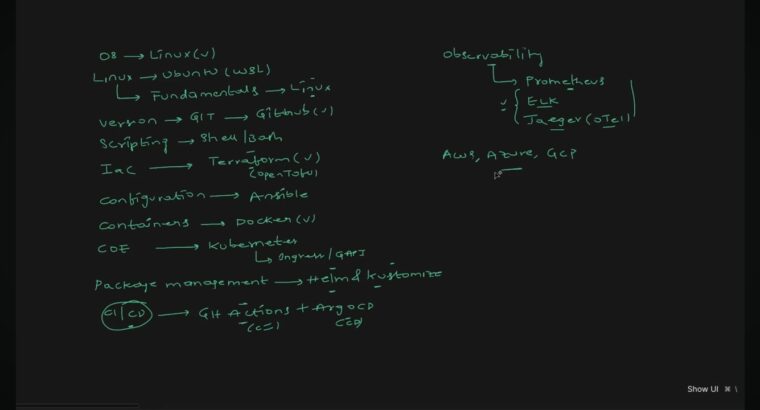 OS → Linux (✓)
Linux → Ubuntu (WSL)
Fundamentals → Linux
Version → GIT → Github (✓)
Scripting → Shell / Bash
IaC → Terraform (✓)
(OpenTofu)
Configuration → Ansible
Containers → Docker (✓)
COE → Kubernetes
Ingress / GAPI
Package management → Helm & Kustomize
CI / CD → GH Actions + ArgoCD
(CI) (CD)
Observability
Prometheus
✓ ELK
Jaeger (OTel)
AWS, Azure, GCP
Show UI ⌘ \